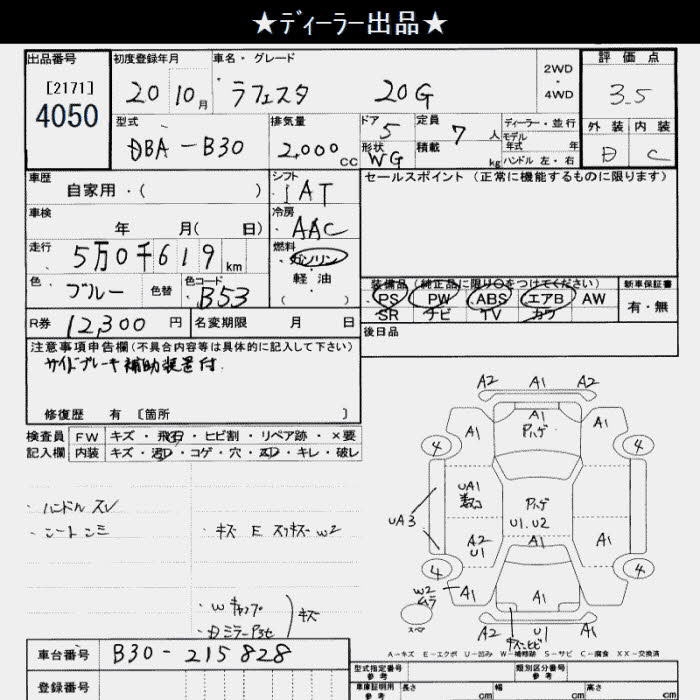 ★ディーラー出品★
出品番号 初度登録年月 車名・グレード 2WD・4WD 評価点
[2171] 4050 20 10月 ラフェスタ 20G 3.5
外装 内装
D C
型式 排気量 ドア 定員 ディーラー・並行
DBA-B30 2,000cc 5 7人 モデル年式 年
形状 積載
WG kg ハンドル 左・右
車歴 シフト セールスポイント(正常に機能するものに限ります)
自家用・( ) IAT
車検 冷房
年 月( 日) AAC
走行 燃料
5万0千619km ガソリン
軽油
( )
色 色替 色コード
ブルー B53
装備品(純正品に限り○をつけてください) 新車保証書
PS PW ABS エアB AW 有・無
SR ナビ TV カワ
R券 12,300円 名変期限 月 日 後日品
注意事項申告欄(不具合内容等は具体的に記入して下さい)
サイドブレーキ補助装置付.
修復歴 有 [箇所 ]
検査員 FW キズ・飛石・ヒビ割・リペア跡・×要
記入欄 内装 キズ・汚レ・コゲ・穴・凹・キレ・破レ
・ハンドル スレ
・シート シミ
・キズ E スリキズ W2
・W キャップ
・Dミラー キズ
A2 A1 A2
A1 A1 A1
Pハゲ
4 4
UA1
Pハゲ
UA3
U1.U2
A2 A1 A1
U1
4 4
W2 A1 A1 A1
ムラ
スペア
キズ・ヒビ
A2 U1 A2
A1
A-キズ E-エクボ U-凹み W-補修跡 S-サビ C-腐食 XX-交換済
車台番号 B30-215828
型式指定番号 参考 類別区分番号 参考
登録番号
車庫証明用 参考 長さ cm 幅 cm 高さ cm